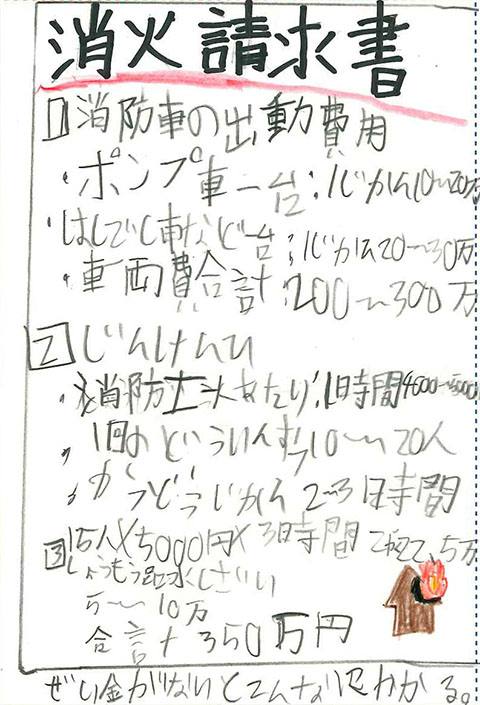 消火請求書
1 消防車の出動費用
・ポンプ車一台:1じかん10〜20万
・はしごし車など一台:1じかん20〜30万
・車両費合計:200〜300万
2 じんけんひ
・消防士一人あたり:1時間4000〜5000
・1回のどういんすう10〜20人
・かつどうじかん2〜3時間
15人×5000円×3時間で22.5万
3 しょうもう品
5〜10万
合計350万円
ぜい金がないとこんなにかかる。